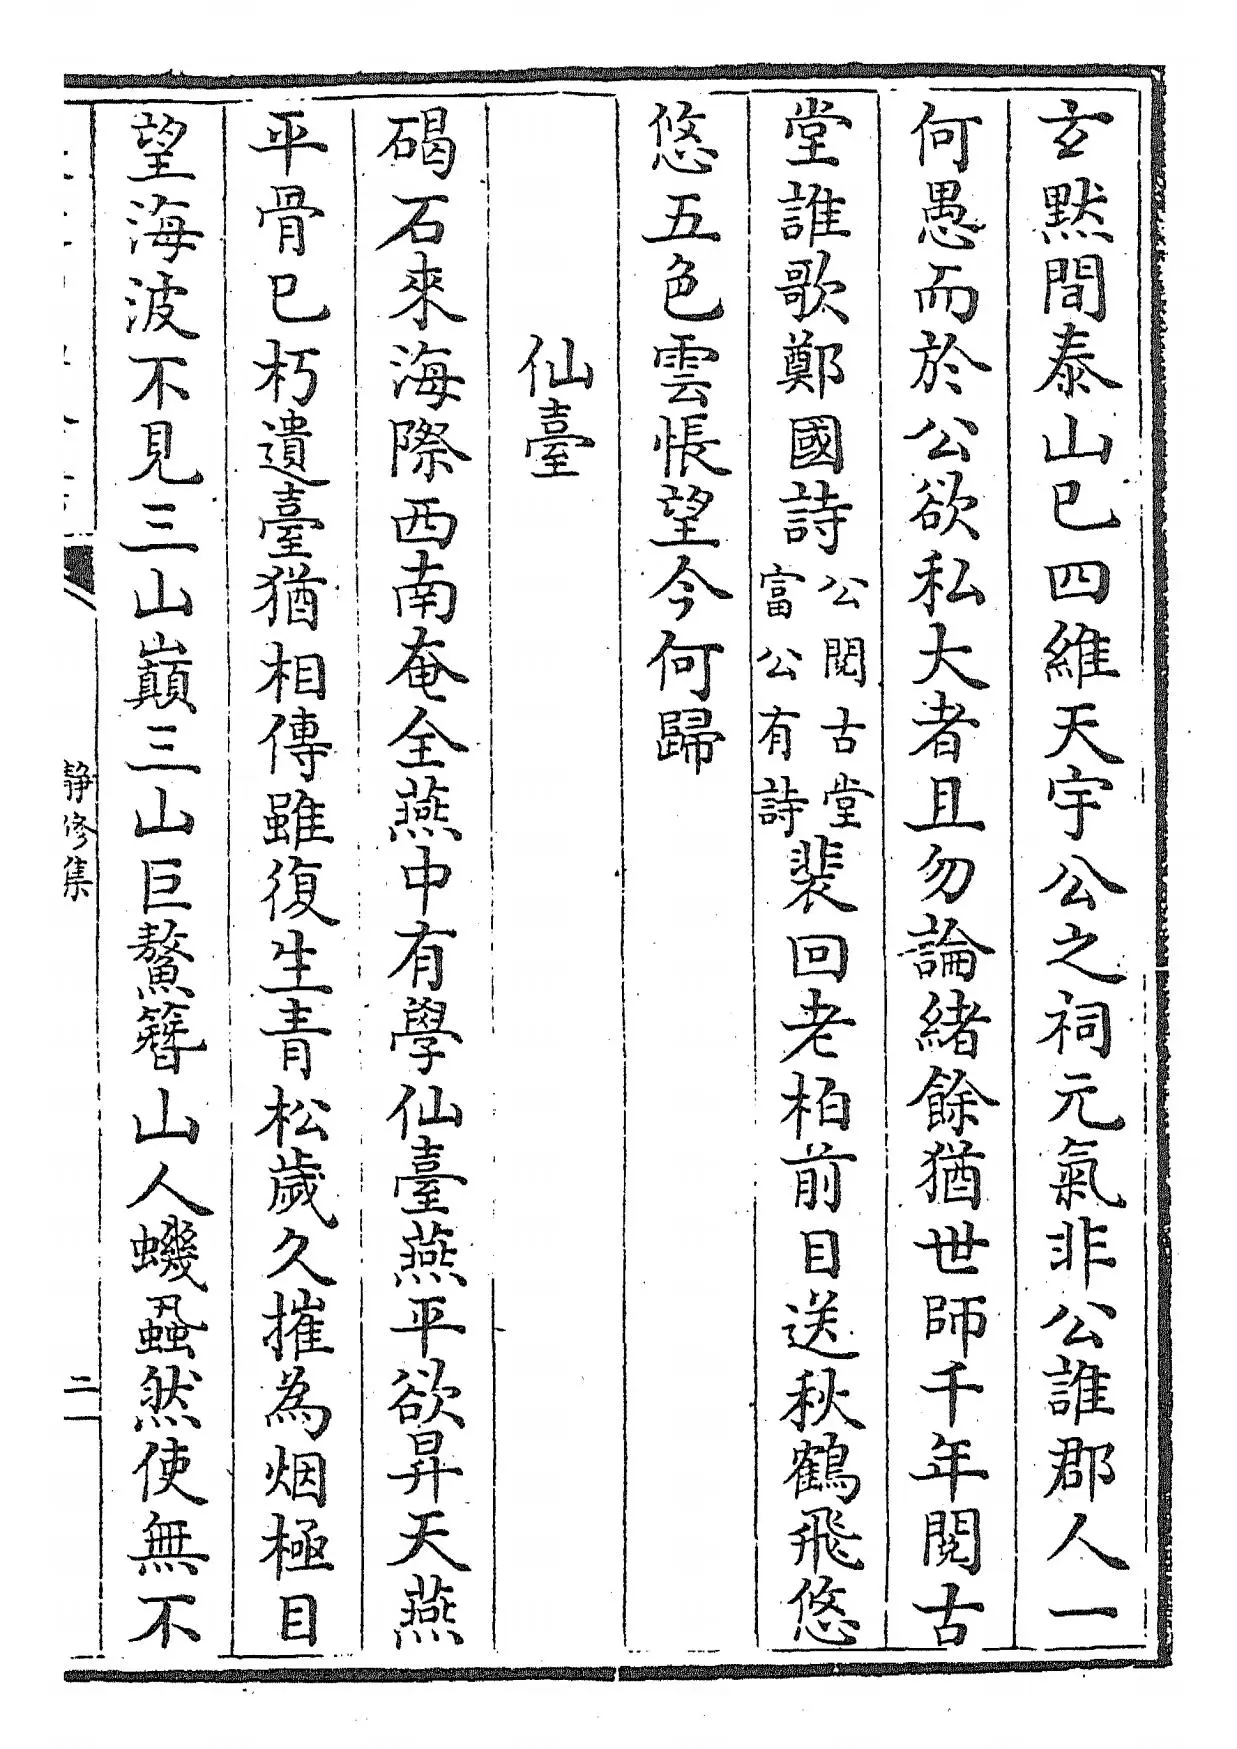 玄黙間泰山已四維天宇公之祠元氣非公誰郡人一
何愚而於公欲私大者且勿論緒餘猶世師千年閱古
堂誰歌鄭國詩公閱古堂富公有詩裴回老柏前目送秋鶴飛悠
悠五色雲悵望今何歸
仙臺
碣石來海際西南奄全燕中有學仙臺燕平欲昇天燕
平骨已朽遺臺猶相傳雖復生青松歲久摧為烟極目
望海波不見三山巔三山巨鰲簪山人蟣蝨然使無不
靜修集
二